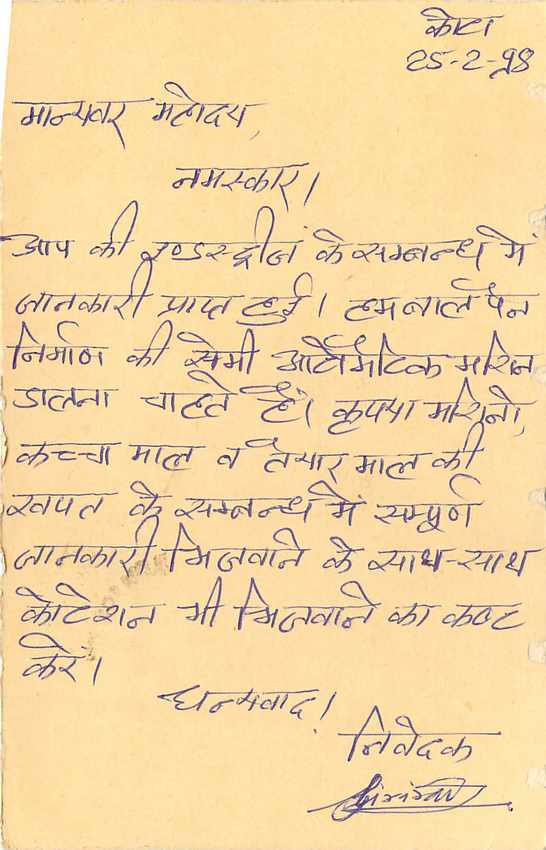 कोटा
25-2-98
मान्यवर महोदय,
नमस्कार।
आप की इण्डस्ट्रीज के सम्बन्ध में
जानकारी प्राप्त हुई। हम बाल पैन
निर्माण की सेमी आटोमेटिक मशिन
डालना चाहते हैं। कृपया मशिनो,
कच्चा माल व तैयार माल की
खपत के सम्बन्ध में सम्पूर्ण
जानकारी भिजवाने के साथ-साथ
कोटेशन भी भिजवाने का कष्ट
करें।
धन्यवाद!
निवेदक